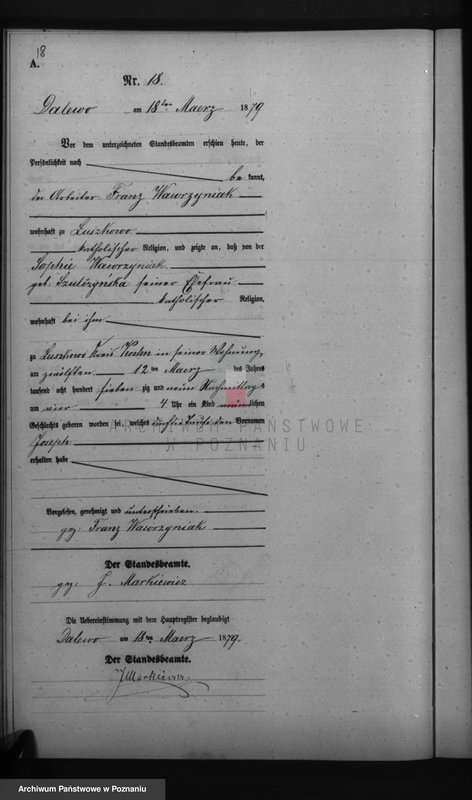 18
A.
Nr. 18.
Dalewo am 18ten Maerz 1879
Vor dem unterzeichneten Standesbeamten erschien heute, der
Persönlichkeit nach
be kannt,
der Arbeiter Franz Wawrzyniak
wohnhaft zu Luszkowo
katholischer Religion, und zeigte an, daß von der
Sophie Wawrzyniak
geb. Szulczyńska seiner Ehefrau
katholischer Religion,
wohnhaft bei ihm
zu Luszkowo Kreis Kosten in seiner Wohnung
am zwölften 12 Maerz des Jahres
tausend acht hundert sieben zig und neun Nachmittags
um vier 4 Uhr ein Kind männlichen
Geschlechts geboren worden sei, welches Vornamen
Joseph
erhalten habe
Vorgelesen, genehmigt und unterschrieben.
gez. Franz Wawrzyniak
Der Standesbeamte.
gez. J. Markiewicz
Die Uebereinstimmung mit dem Hauptregister beglaubigt
Dalewo am 18ten Maerz 1879.
Der Standesbeamte.
J Markiewicz
ARCHIWUM PAŃSTWOWE
W POZNANIU
Archiwum Państwowe w Poznaniu